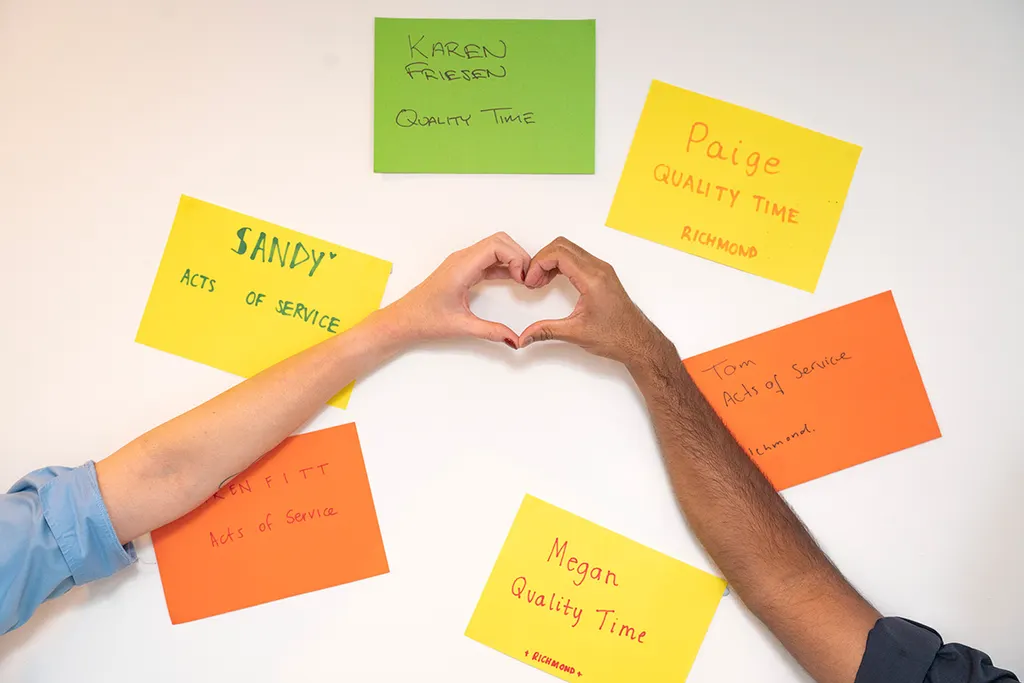 KAREN
FRIESEN
QUALITY TIME
Paige
QUALITY TIME
RICHMOND
SANDY
ACTS OF SERVICE
Tom
Acts of Service
FITT
Acts of Service
Megan
Quality Time
+ RICHMOND +